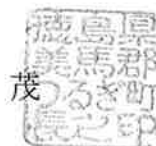 茂
徳島県
美馬郡
つるぎ町
長之印